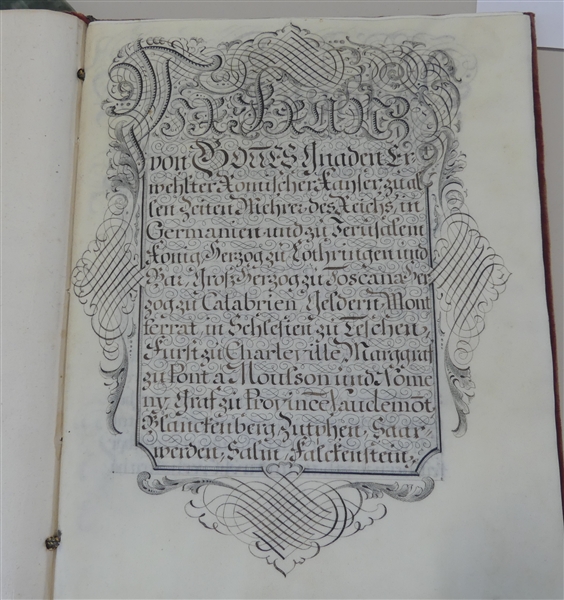 Wir Frantz
von GOTTES Gnaden Er-
wehlter Römischer Kayser, zu al-
len Zeiten Mehrer des Reichs, in
Germanien und zu Jerusalem
König, Herzog zu Lothringen und
Bar, Groß-Herzog zu Toscana, Her-
zog zu Calabrien, Geldern, Mont-
ferrat, in Schlesien zu Teschen,
Fürst zu Charleville, Marggraf
zu Pont à Mousson und Nome-
ny, Graf zu Provincè, Vaudemōt,
Blanckenberg, Zutphen, Saar-
werden, Salm, Falckenstein,